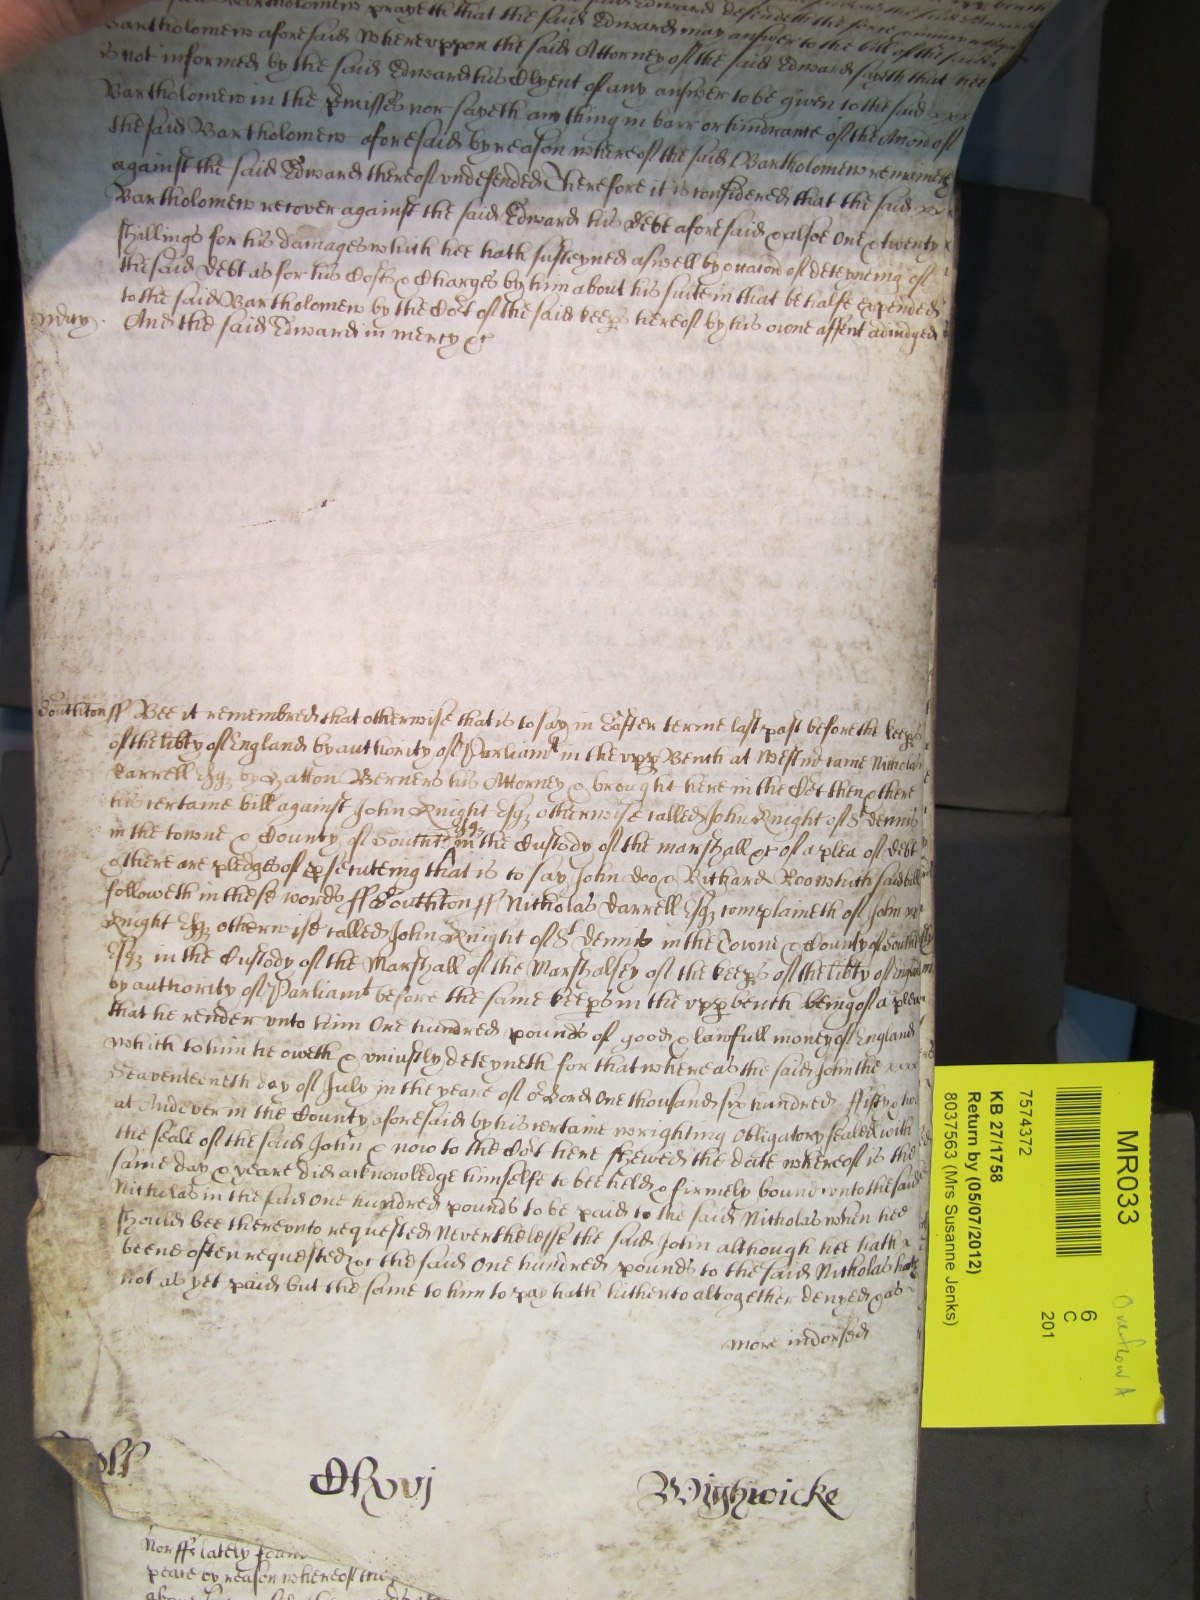 said Bartholomew prayeth that the said Edward may answer to the bill of the said
Bartholomew aforesaid Whereuppon the said Attorney of the said Edward sayth that hee
is not informed by the said Edward his Clyent of any answer to be given to the said xxx
Bartholomew in the p'misses nor sayeth any thing in barr or hindrance of the Accon of
the said Bartholomew aforesaid by reason whereof the said Bartholomew remaineth
against the said Edward thereof undefended Therefore it is considered that the said xx
Bartholomew recover against the said Edward his debt aforesaid & alsoe one & twenty x
shillings for his damages which hee hath susteyned aswell by occacon of deteyneing of
the said debt as for his Costs & Charges by him about his suite in that behalfe expended
to the said Bartholomew by the Co't of the said keep's hereof by his owne assent adiudged
mercy. And the said Edward in mercy &c
Southton ss Bee it remembred that otherwise that is to say in Easter terme last past before the keep's
of the lib'ty of England by authority of Parliam't in the upp' Bench at Westm' came Nicholas
Darrell Esq' by Hatton Berners his Attorney & brought here in the Co't then & there
his certaine bill against John Knight Esq' otherwise called John Knight of S't Dennis
in the towne & County of Southt' Esq' in the Custody of the marshall &c of a plea of debt
& there are pledges of p'secuteing that is to say John Doo & Richard Roo which said bill
followeth in these words ss Southton ss Nicholas Darrell Esq' complaineth of John
Knight Esq' otherwise called John Knight of S't Dennis in the Towne & County of South
Esq' in the Custody of the Marshall of the Marshalsey of the keep's of the lib'ty of England
by authority of Parliam't before the same keep's in the upp' bench being of a plea
that he render unto him One hundred pounds of good & lawfull money of England
which to him he oweth & uniustly deteyneth for that whereas the said John the xxx
Seaventeeneth day of July in the yeare of o'r Lord One thousand six hundred fifty & two
at Andever in the County aforesaid by his certaine wrighting obligatory sealed with
the seale of the said John & now to the Co't here shewed the date whereof is the
same day & yeare did acknowledge himselfe to bee held & firmely bound unto the said
Nicholas in the said One hundred pounds to be paid to the said Nicholas when hee
should bee thereunto requested Neverthelesse the said John although hee hath x
beene often requested &c the said One hundred pounds to the said Nicholas hath
not as yet paid but the same to him to pay hath hitherto altogether denyed & as
more indorsed
Wightwicke
Norff's lately
peace by reason whereof
MR033
7574372
KB 27/1758
Return by (05/07/2012)
8037563 (Mrs Susanne Jenks)
6
C
201
Overflow A